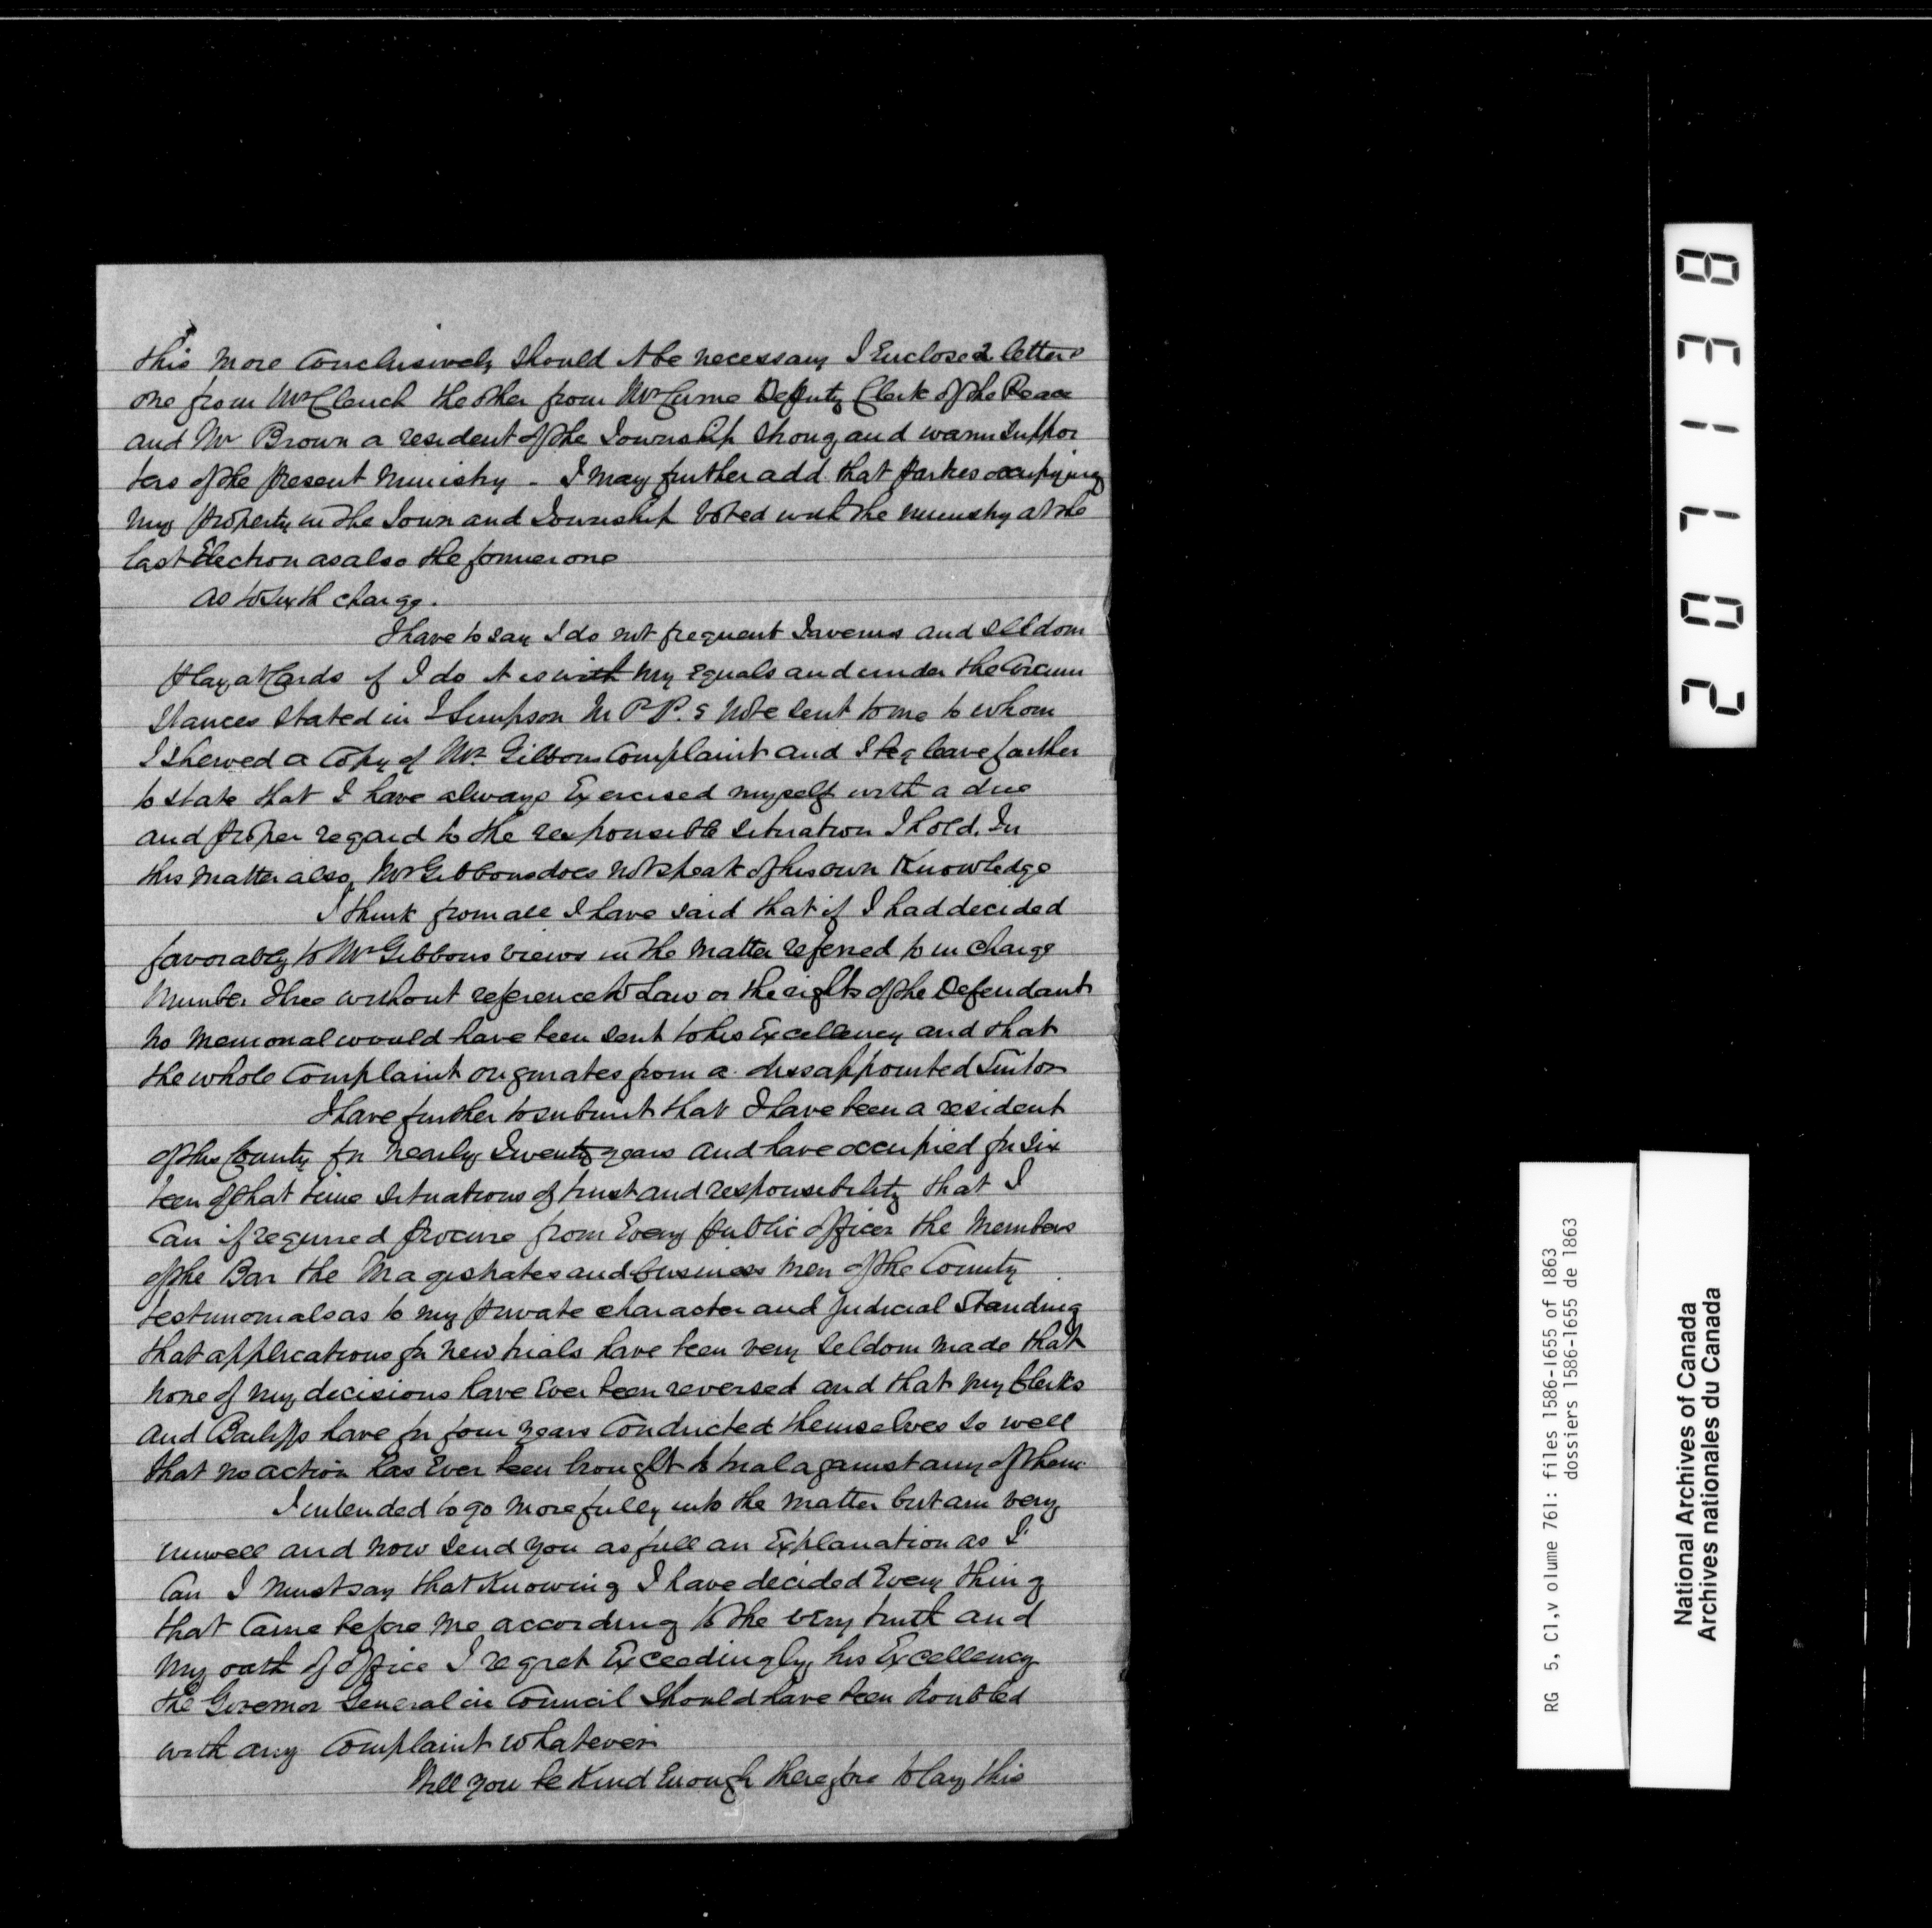 this more conclusively should it be necessary I Enclose 2 letters
one from Mr Clench the other from Mr Currie Deputy Clerk of the Peace
and Mr Brown a resident of the Township strong and warm suppor
ters of the present Ministry - I may further add that parties occupying
my property in the Town and Township voted with the ministry at the
last Election as also the former one
as to sixth charge.
I have to say I do not frequent Taverns and seldom
play at Cards if I do it is with my Equals and under the Circum
stances stated in Simpson M P P.s Note sent to me to whom
I shewed a Copy of Mr. Gibbons Complaint and I beg leave further
to state that I have always Exercised myself with a due
and proper regard to the responsible situation I hold. In
this matter also, Mr Gibbons does not speak of his own Knowledge
I think from all I have said that if I had decided
favorably to Mr Gibbons views in the matter referred to in charge
Number three without reference to Law or the rights of the Defendant
no memorial would have been sent to his Excellency and that
the whole Complaint originates from a dissappointed Suitor
I have further to submit that I have been a resident
of this County for nearly Twenty years and have occupied for Six
teen of that time situations of trust and responsibility that I
Can if required procure from Every public officer the Members
of the Bar the Magistrates and business men of the County
testimonials as to my private character and judicial Standing
that applications for new trials have been very seldom made that
none of my decisions have Ever been reversed and that my Clerks
and Bailiffs have for four years Conducted themselves so well
that no action has Ever been brought to trial against any of them
I intended to go more fully into the matter but am very
unwell and now send you as full an Explanation as I
Can I must say that Knowing I have decided Every thing
that Came before me according to the very truth and
my oath of office I regret Exceedingly his Excellency
the Governor General in Council should have been troubled
with any Complaint whatever
Will you be Kind Enough therefore to lay this
207138
RG 5, C1,v olume 761: files 1586-1655 of 1863
dossiers 1586-1655 de 1863
National Archives of Canada
Archives nationales du Canada